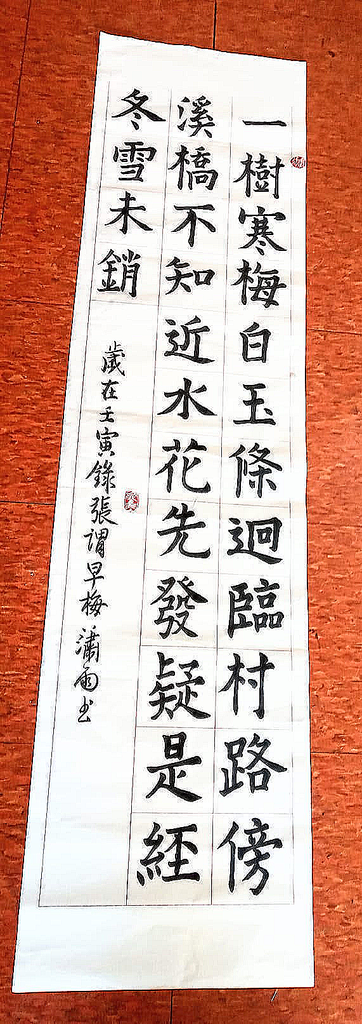 一樹寒梅白玉條迥臨村路傍
溪橋不知近水花先發疑是經
冬雪未銷
歲在壬寅錄張謂早梅瀟雨书